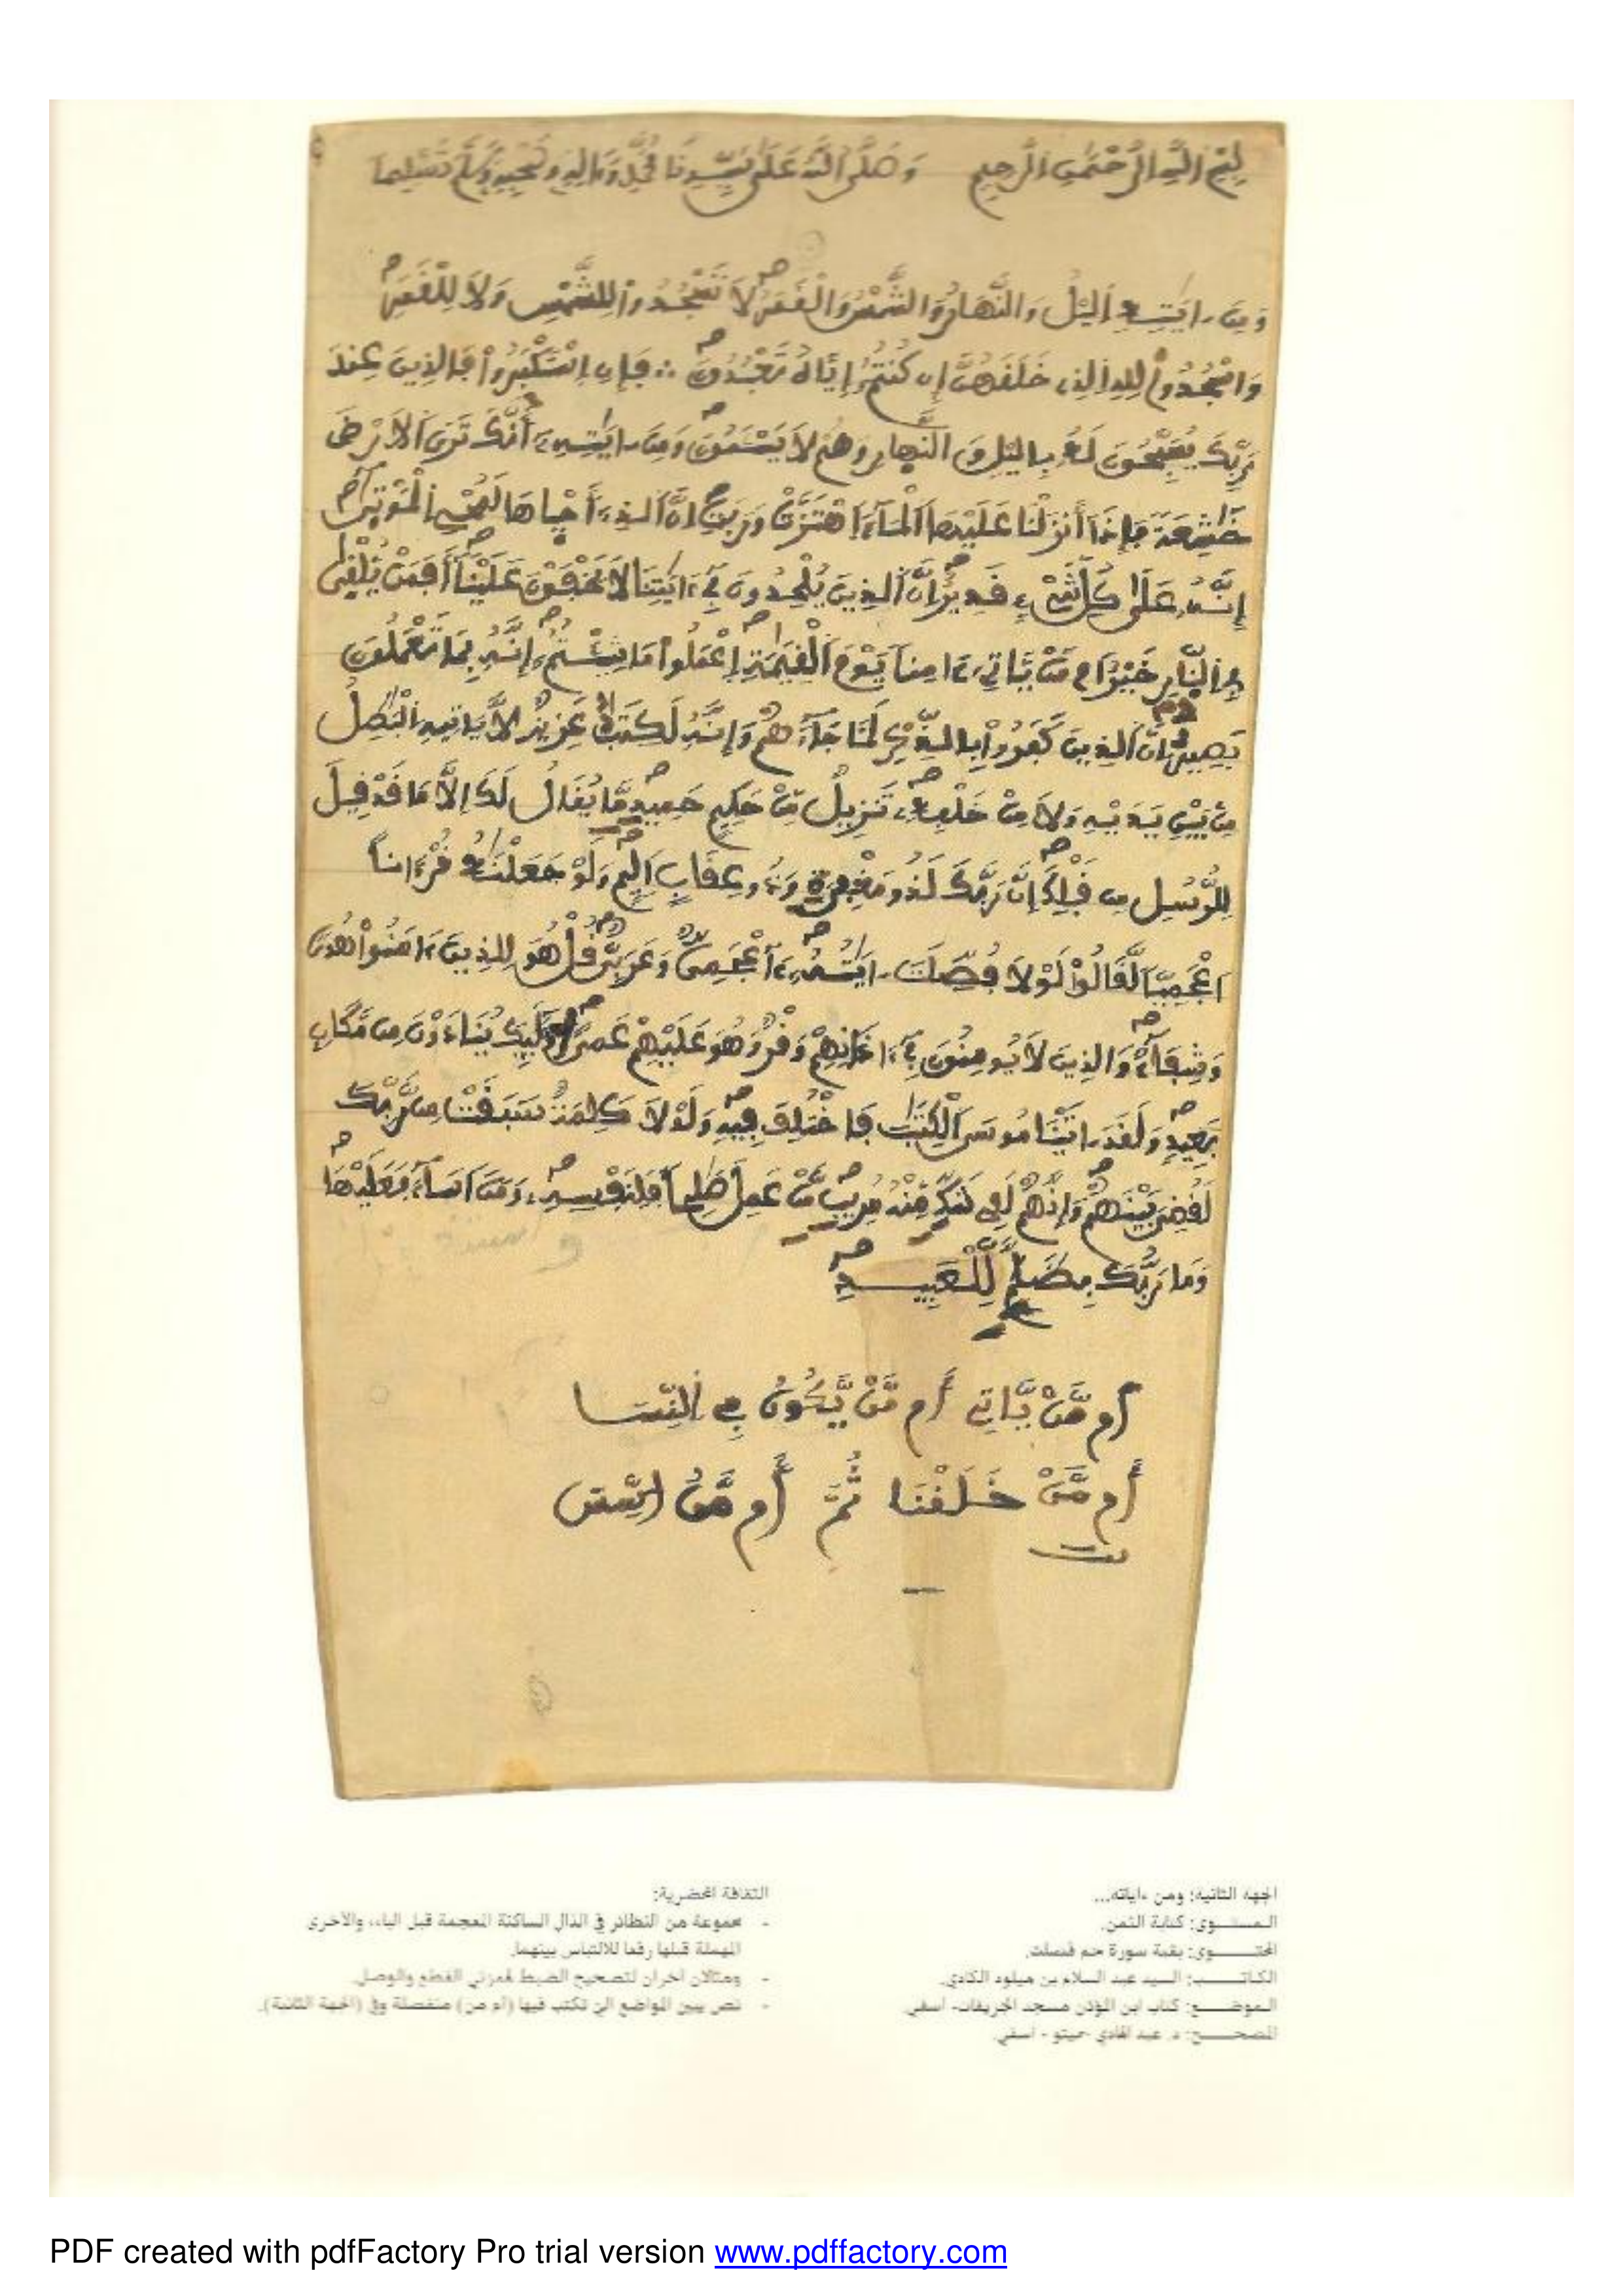 بسم الله الرحمن الرحيم وصلى الله على سيدنا محمد وءاله وصحبه وسلم تسليما
وَمِنَ ـايَٰتِهِ اِليْلُ وَالنَّهَارُ وَالشَّمْسُ وَالْقَمَرُ لَا تَسْجُدُواْ لِلشَّمْسِ وَلَا لِلْقَمَرِ
وَاسْجُدُواْ لِلهِ الذِے خَلَقَهُنَّ إِن كُنتُمُ إِيَّاهُ تَعْبُدُونَ ∴ فَإِنِ اِسْتَكْبَرُواْ فَالذِينَ عِندَ
رَبِّكَ يُسَبِّحُونَ لَهُ بِاليْلِ وَالنَّهارِ وَهُمْ لَا يَسْـَٔمُونَ وَمِنَ ـايَٰتِهِۦ أَنَّكَ تَرَى اَلَارْضَ
خَٰشِعَةً فَإِذَا أَنزَلْنَا عَلَيْهَا اَلْمَآءَ اَهْتَزَّتْ وَرَبَتِ اِنَّ اَلذِےٓ أَحْياهَا لَمُحْيِ اِلْمَوْتَىٰٓ
إِنَّهُۥ عَلَىٰ كُلِّ شَےْءٍ قَدِيرٌ اِنَّ اَلذِينَ يُلْحِدُونَ فِےٓ ءَايَٰتِنَا لَا يَخْفَوْنَ عَلَيْنَآ أَفَمَنْ يُّلْقَىٰ
فِے اِلنّارِ خَيْرٌ اَم مَّنْ يَّاتِےٓ ءَامِناً يَوْمَ اَلْقِيَٰمَةِ اِعْمَلُواْ مَا شِئْتُمُۥٓ إِنَّهُۥ بِمَا تَعْمَلُونَ
بَصِيرٌ اِنَّ اَلذِينَ كَفَرُواْ بِالذِّكْرِ لَمَّا جَآءَهُمْ وَإِنَّهُۥ لَكِتَٰبٌ عَزِيزٌ لَّا يَاتِيهِ اِلْبَٰطِلُ
مِنۢ بَيْنِ يَدَيْهِ وَلَا مِنْ خَلْفِهِۦ تَنزِيلٌ مِّنْ حَكِيمٍ حَمِيدٍ مَّا يُقَالُ لَكَ إِلَّا مَا قَدْ قِيلَ
لِلرُّسُلِ مِن قَبْلِكَ إِنَّ رَبَّكَ لَذُو مَغْفِرَةٍ وَذُو عِقَابٍ اَلِيمٍ وَلَوْ جَعَلْنَٰهُ قُرْءَاناً
اَعْجَمِيّاً لَّقَالُواْ لَوْلَا فُصِّلَتَ ـايَٰتُهُۥٓ ءَآعْجَمِيٌّ وَعَرَبِيٌّ قُلْ هُوَ لِلذِينَ ءَامَنُواْ هُدىً
وَشِفَآءٌ وَالذِينَ لَا يُومِنُونَ فِےٓ ءَاذَانِهِمْ وَقْرٌ وَهُوَ عَلَيْهِمْ عَمىً اُوْلَٰٓئِكَ يُنَادَوْنَ مِن مَّكَانٍ
بَعِيدٍ وَلَقَدَ ـاتَيْنَا مُوسَى اَلْكِتَٰبَ فَاخْتُلِفَ فِيهِ وَلَوْلَا كَلِمَةٌ سَبَقَتْ مِن رَّبِّكَ
لَقُضِيَ بَيْنَهُمْ وَإِنَّهُمْ لَفِے شَكٍّ مِّنْهُ مُرِيبٍ مَّنْ عَمِلَ صَٰلِحاً فَلِنَفْسِهِۦ وَمَنَ اَسَآءَ فَعَلَيْهَا
وَمَا رَبُّكَ بِظَلَّٰمٍ لِّلْعَبِيدِ
أَم مَّنْ يَّاتِے أَم مَّنْ يَّكُونُ فِے اِلنِّسَا
أَم مَّنْ خَلَقْنَا ثُمَّ أَم مَّنُ اسَّسَ
الجهة الثانية: ومن ءاياته...
المستوى: كتابة الثمن.
المحتوى: بقية سورة حم فصلت.
الكاتب: السيد عبد السلام بن ميلود الكادي.
الموضع: كتاب ابن المؤذن مسجد الجريفات- أسفي.
المصحح: د. عبد الهادي حيتو - أسفي.
الثقافة المحضرية:
- مجموعة من النظائر في الدال الساكنة المعجمة قبل الباء، والأخرى
المهملة قبلها رفعا للالتباس بينهما.
- ومثالان آخران لتصحيح الضبط لهمزتي القطع والوصل.
- نص يبين المواضع التي تكتب فيها (أم من) منفصلة وفي (الجهة الثانية).
PDF created with pdfFactory Pro trial version www.pdffactory.com